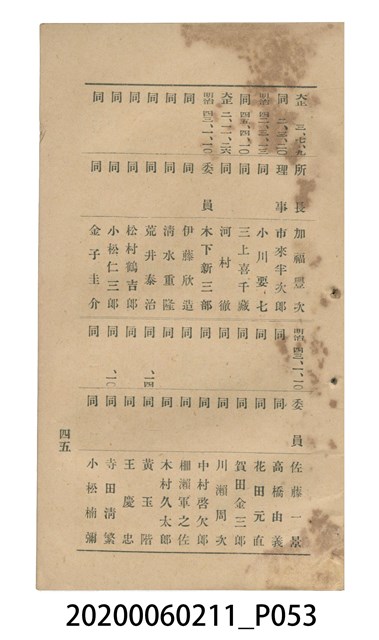 大正 三、七、九 所長 加福豐次
同 二、六、二〇 理事 市來半次郎
明治 四二、三、一三 同 小川要七
同 四五、四、一〇 同 三上喜千藏
大正 二、一一、二六 同 河村徹
明治 四三、一、一〇 委員 木下新三郎
同 同 伊藤欣造
同 同 清水重隆
同 同 荒井泰治
同 同 松村鶴吉郎
同 同 小松仁三郎
同 同 金子圭介
明治 四三、一、一〇 委員 佐藤一景
同 同 高橋由義
同 同 花田元直
同 同 賀田金三郎
同 同 川瀨周次
同 同 中村啓次郎
同 同 棚瀨軍之佐
同 同 木村久太郎
同 、一四 同 黃玉階
同 同 王慶忠
同 、一〇 同 寺田淸繁
同 同 小松楠彌
四五
20200060211_P053